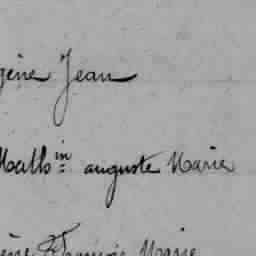 gène Jean
Math.in auguste Marie
ène François Marie